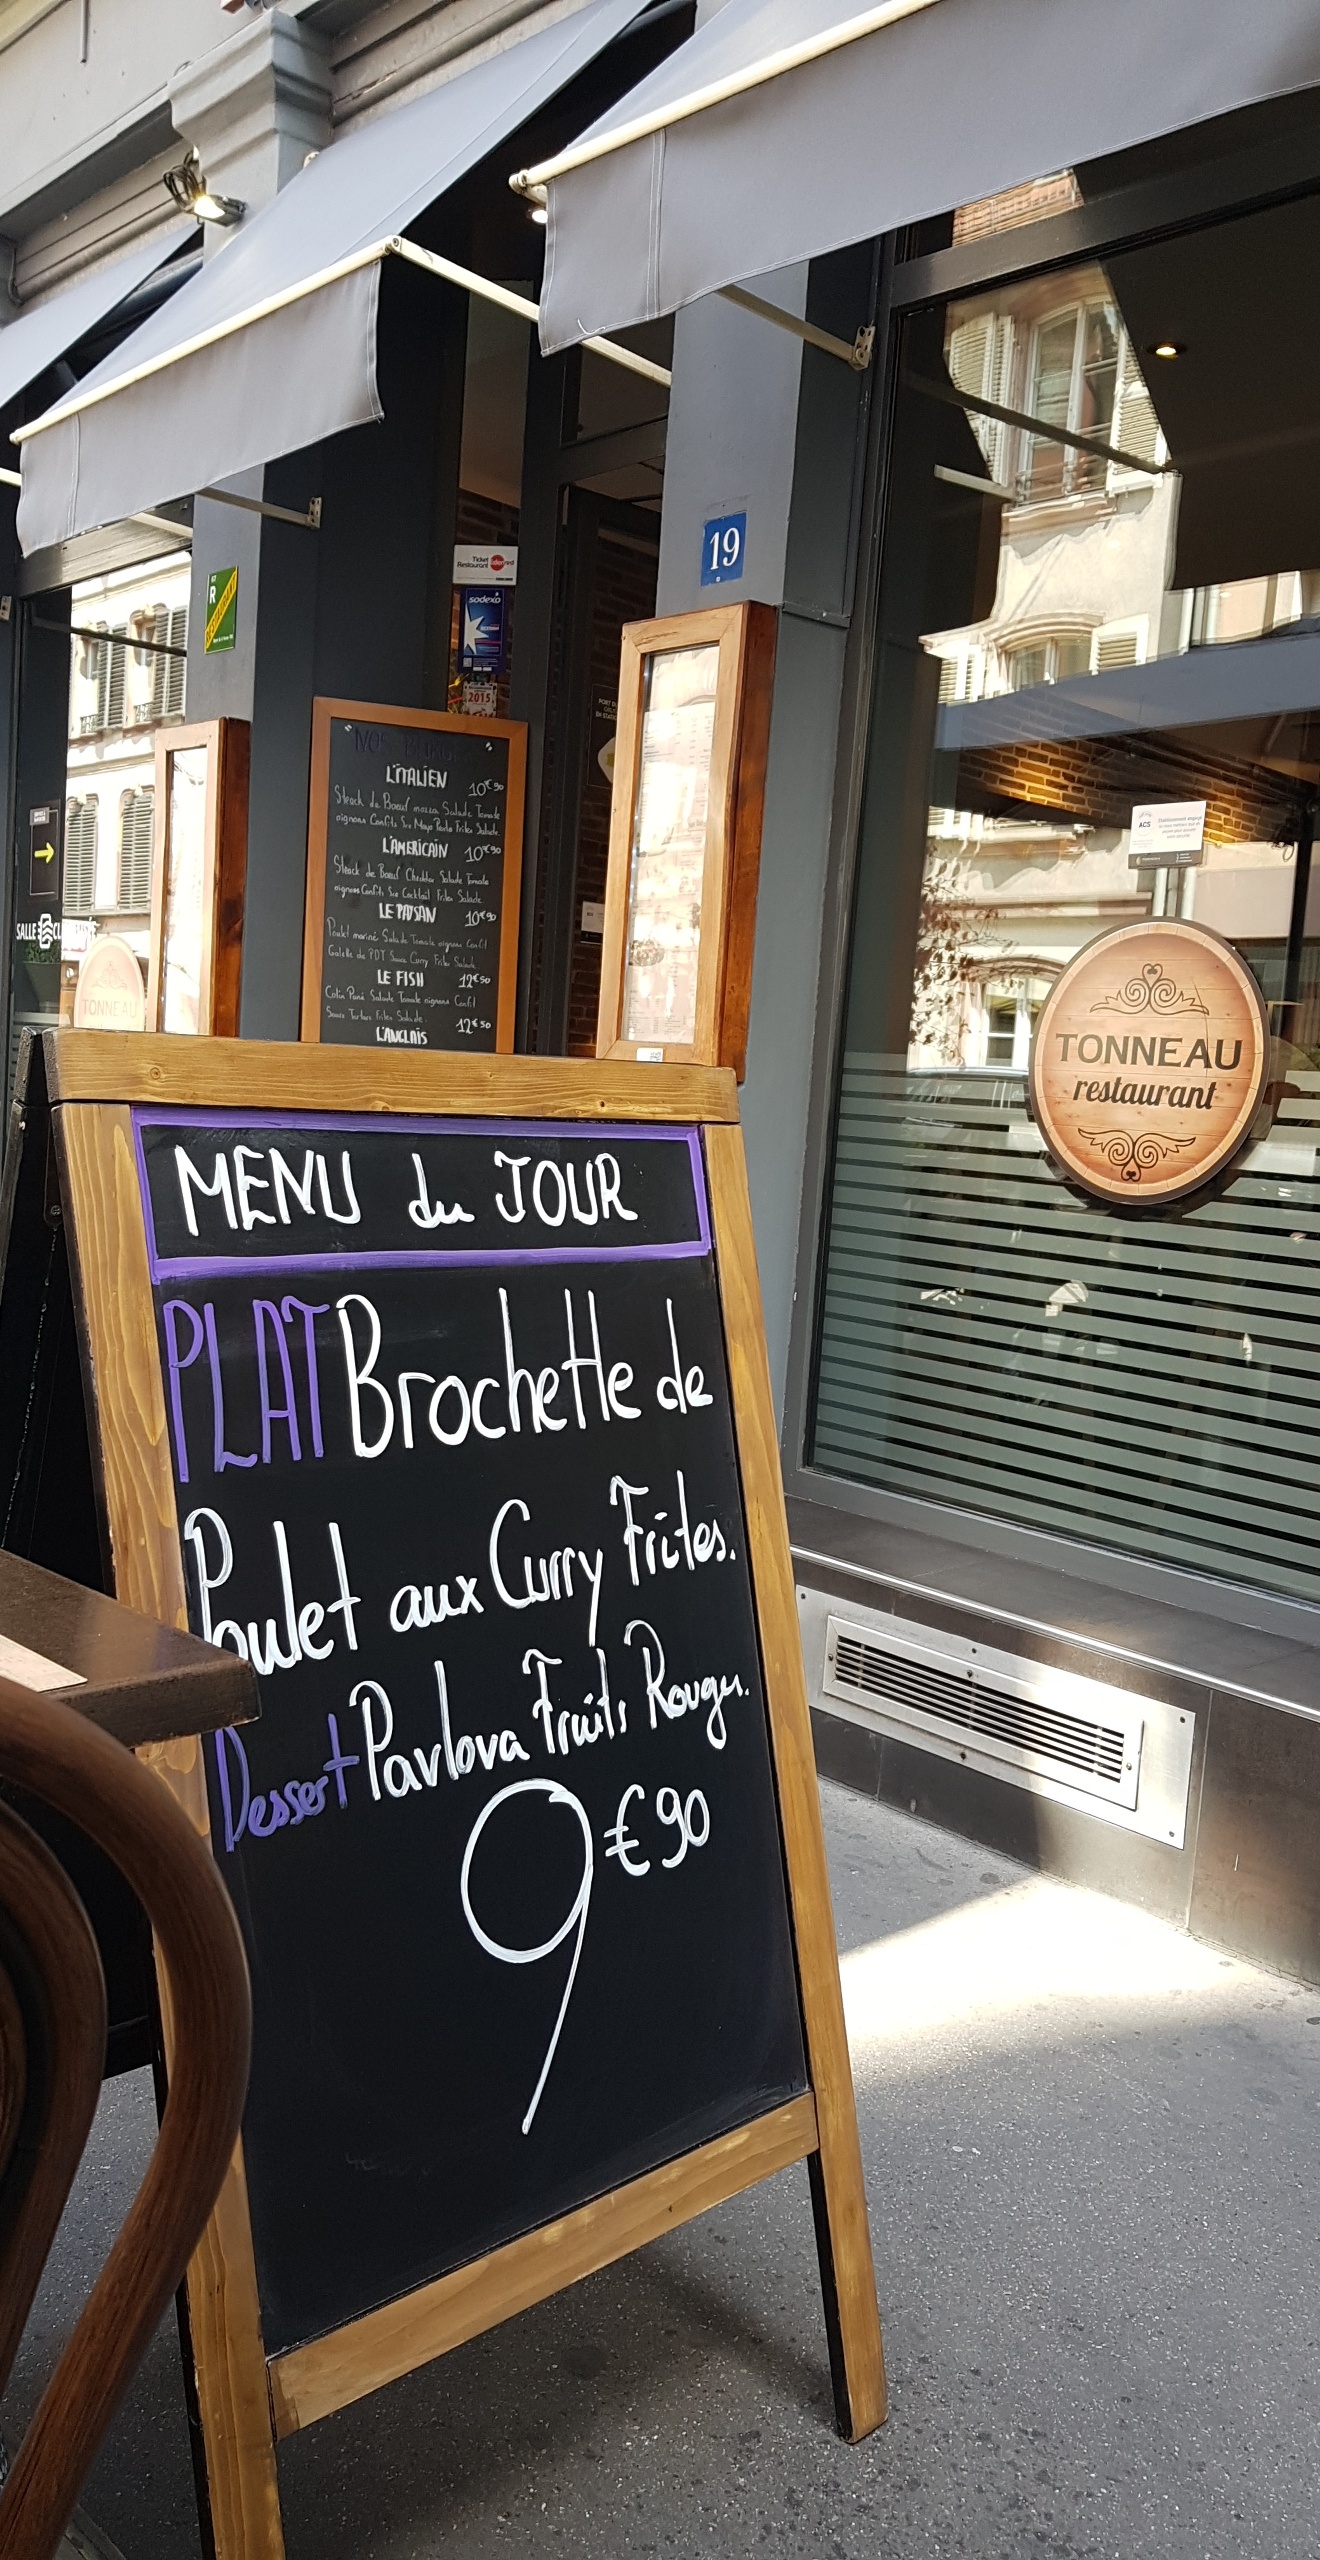 19
67
R
RESTAURANT
Ticket
Restaurant
Edenred
sodexo
2015
NOS
L'ITALIEN 10€90
Steack de Boeuf mozza Salade Tomate
oignons Confits Frites Salade.
L'AMERICAIN 10€90
Steack de Boeuf Cheddar Salade Tomate
oignons Confits Sce Cocktail Frites Salade
LE PAYSAN 10€90
Poulet mariné Salade Tomate oignons Confit
Galette de PDT Sauce Curry Frites Salade.
LE FISH 12€50
Colin Pané Salade Tomate oignons Confit
Sauce Tartare Frites Salade.
L'ANGLAIS 12€50
SALLE CLIMATISÉE
TONNEAU
ACS
Etablissement engagé
TONNEAU
restaurant
MENU du JOUR
PLAT Brochette de
Poulet aux Curry Frites.
Dessert Pavlova Fruits Rouges.
9€90